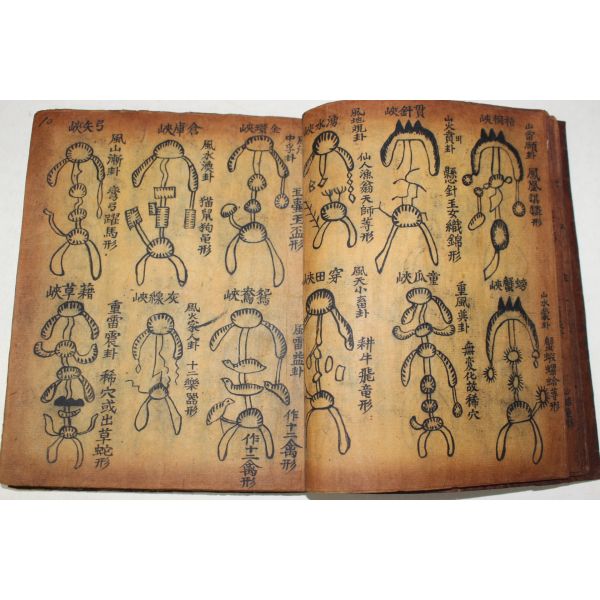 梧桐峽
山雷頤卦
鳳凰形
貫針峽
山火賁卦
懸針玉女織錦形
水峽
風地觀卦
仙人漁翁天師等形
螃蟹峽
山水蒙卦
蟹蝦螺蛤等形
童瓜峽
重風巽卦
無变化故稀穴
穿田峽
風天小畜卦
耕牛飛竜形
金環峽
中孚卦
玉玉盃形
倉庫峽
風水渙卦
猫鼠狗形
弓矢峽
風山漸卦
彎弓躍馬形
鴛鴦峽
風雷益卦
作十二禽形
作十二禽形
灰線峽
風火家人卦
十二樂器形
草峽
重雷震卦
稀穴或出草蛇形